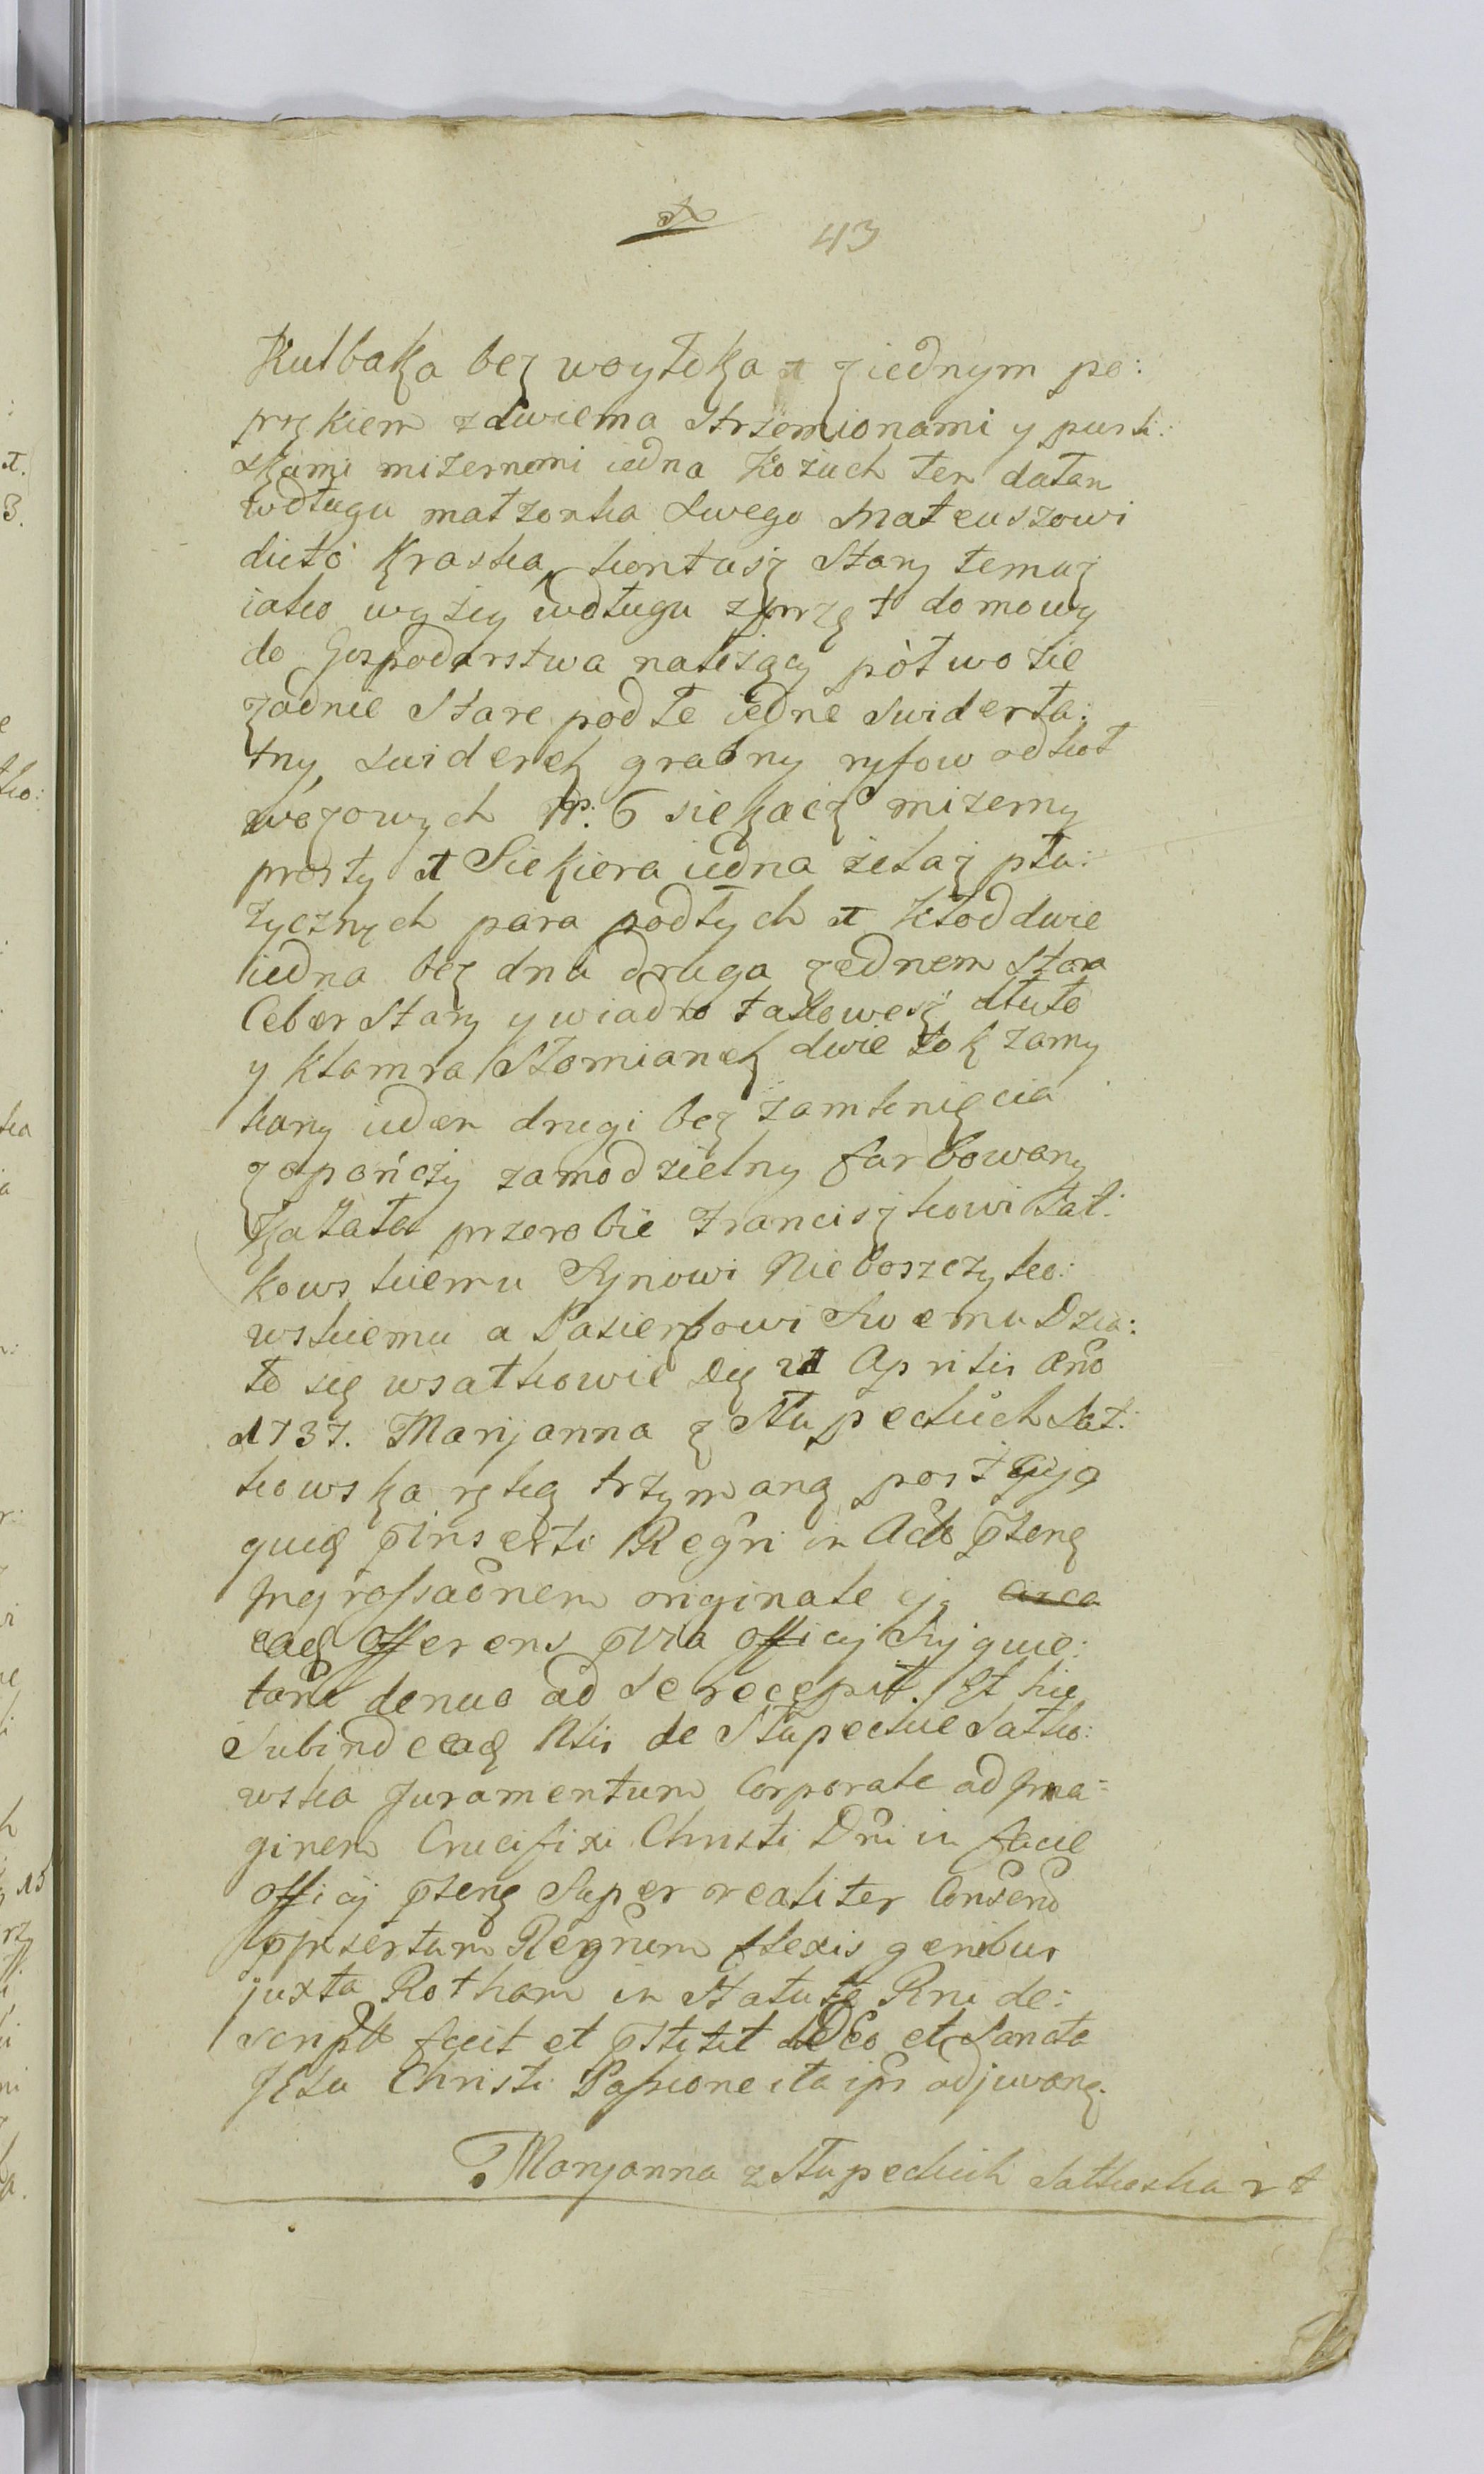 43
Kulbaka bez woyłoka 1 z iednym po:
przkiem z dwiema strzemionami y push:
skami mizernemi iedna Kożuch ten dałam
wdługu małzonka swego Mateuszowi
dicto Kraska, kontusz stary temuz
iako wyżey wdługu zprzęt domowy
do Gospodarstwa należący pòłwozie
zadnie stare podłe iedne swiderta:
tny, swiderek grabny ryfow od kół
wozowych Nr. 6 siekacz mizerny
prosty 1 Siekiera iedna żelaz płu:
życznych para podłych 1 Kłod dwie
iedna bez dna druga zednem stara
Ceber stary y wiadro taslowesz dłuto
y klamra Słomianek dwie łok zamy
kany ieden drugi bez zamknięcia
zopończy zamodzielny farbowany
Kazała przerobic Franciszkowi Sał:
kowskiemu Synowi Nieboszczyko:
wskiemu a Pasierbowi Swemu Dzia:
ło się wsałkowie Die 21 Aprilis Ano
1737. Maryanna z Słupeckich Sał:
kowska ręką trzymaną post
Regri in Acta
Ingrossaonem originale ej
eadę Offerens officij
denuo ad se recepit. Et hic
Subinde eadę Nlis de Słupeckie Satko:
wska Juramentum Corporale ad Ima=
ginem Crucifixi Christi Dni in facie
officij super realiter
Regrum flexis genibus
juxta Rotham in Statute Rni de:
script fecit et DEo et Sancta
JEsu Christi Passione ita ipi adjuvang.
Maryanna z Słupeckich Satkoska